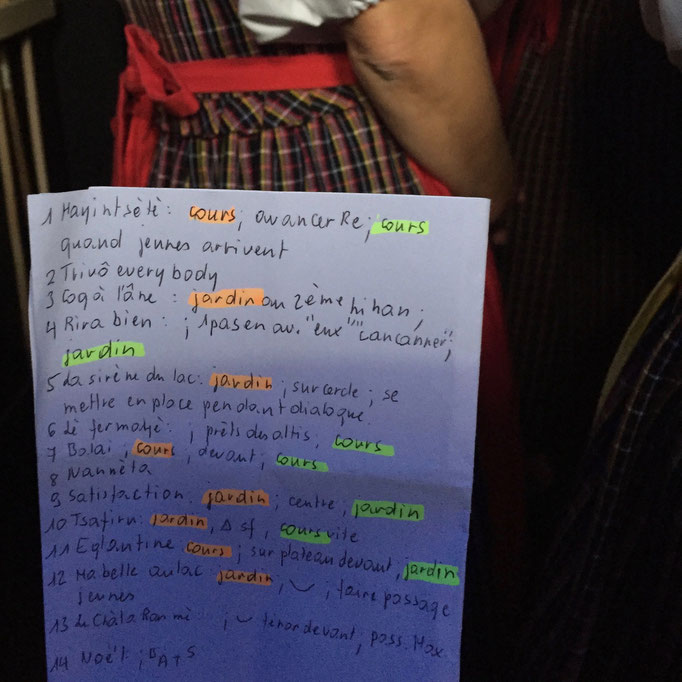 1 Hayintsètè : cours ; avancer Re ; cours
quand jeunes arrivent
2 Trivô every body
3 Coq à l'âne : jardin au 2ème hihan ;
4 Rira bien : ; 1 pas en av. "eux" "cancanner" ;
jardin
5 La sirène du lac : jardin ; sur cercle ; se
mettre en place pendant dialogue.
6 Lè fermayè : ; près des altis, cours
7 Balai ; cours, devant ; cours
8 Nannèta
9 Satisfaction : jardin ; centre ; jardin
10 Tsafiru : jardin, Δ sf, cours vite
11 Eglantine cours ; sur plateau devant, jardin
12 Ma belle au lac : jardin, ‿, faire passage
jeunes
13 : ; ‿ ténor devant, pass. Max
14 Noë't : ; B A T S